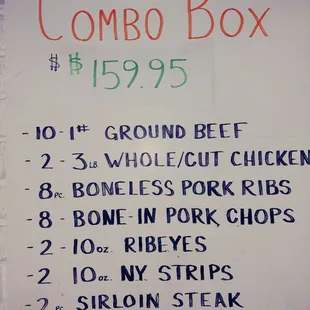 COMBO BOX
$ $159.95
- 10 - 1# GROUND BEEF
- 2 - 3LB. WHOLE/CUT CHICKEN
- 8PC. BONELESS PORK RIBS
- 8 - BONE-IN PORK CHOPS
- 2 - 10OZ. RIBEYES
- 2 10OZ. NY STRIPS
- 2 PC. SIRLOIN STEAK